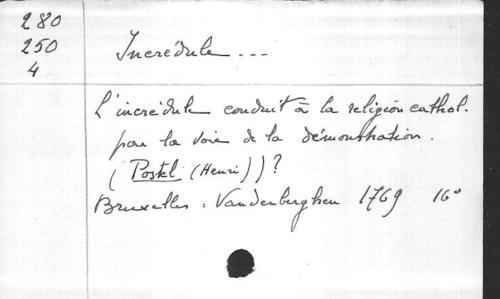 280
250
4
Incrédule ...
L'incrédule conduit à la religion cathol.
par la voie de la démonstration.
(Postel (Henri))?
Bruxelles : Vandenberghen 1769 16°